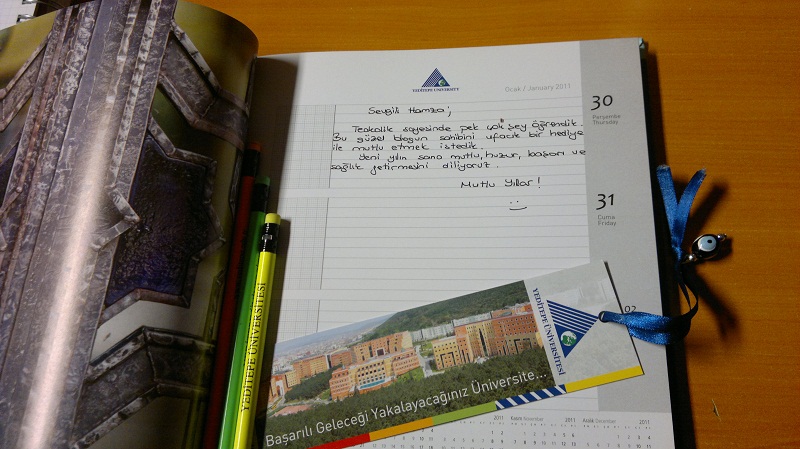 YEDİTEPE UNIVERSITY
Ocak / January 2011
Sevgili Hamza;
30
Perşembe
Thursday
Teakolik sayesinde pek çok şey öğrendik.
Bu güzel blogun sahibini ufacık bir hediye
ile mutlu etmek istedik.
Yeni yılın sana mutlu, huzur, başarı ve
sağlık getirmesini diliyoruz.
Mutlu Yıllar!
31
Cuma
Friday
02
YEDİTEPE ÜNİVERSİTESİ
YEDİTEPE ÜNİVERSİTESİ
Başarılı Geleceği Yakalayacağınız Üniversite...
2011 Kasım November 2011 Aralık December 2011